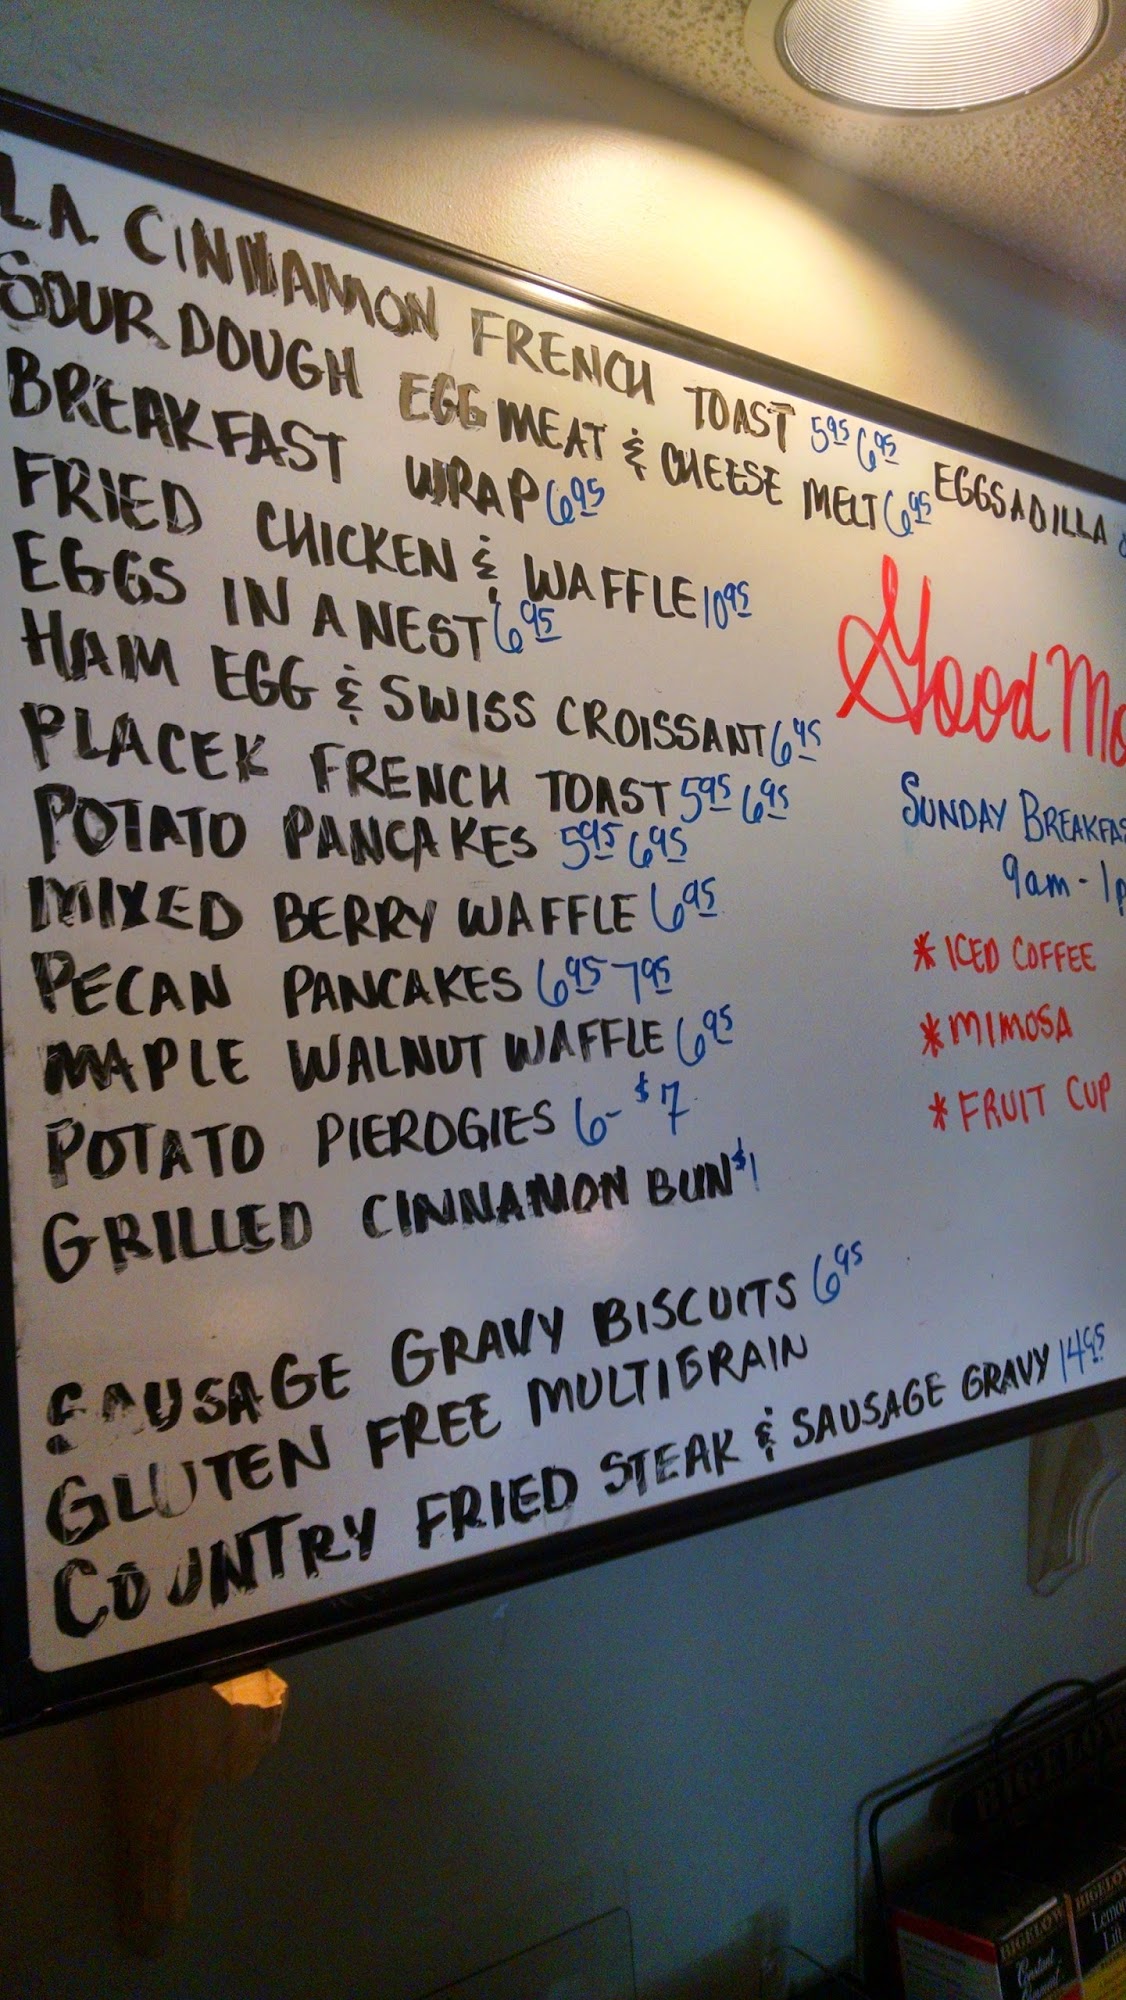 LA CINNAMON FRENCH TOAST 5.95 6.95
SOURDOUGH EGG MEAT & CHEESE MELT 6.95
BREAKFAST WRAP 6.95
FRIED CHICKEN & WAFFLE 10.95
EGGS IN A NEST 6.95
HAM EGG & SWISS CROISSANT 6.95
PLACEK FRENCH TOAST 5.95 6.95
POTATO PANCAKES 5.95 6.95
MIXED BERRY WAFFLE 6.95
PECAN PANCAKES 6.95-7.95
MAPLE WALNUT WAFFLE 6.95
POTATO PIEROGIES 6-$7
GRILLED CINNAMON BUN $1
SAUSAGE GRAVY BISCUITS 6.95
GLUTEN FREE MULTIGRAIN
COUNTRY FRIED STEAK & SAUSAGE GRAVY 14.95
EGGSADILLA
Good Mo
SUNDAY BREAKFAS
9am-1p
* ICED COFFEE
* MIMOSA
* FRUIT CUP
BIGELOW
BIGELOW
Constant
BIGELOW
Lemon
Lift